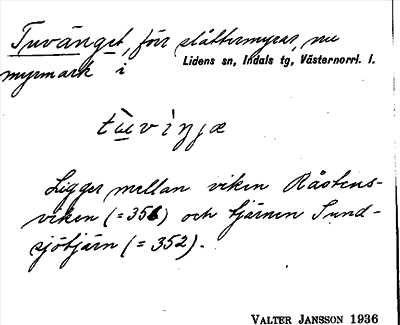 Tuvänget, förr slåttermyrar, nu
myrmark i Lidens sn, Indals tg, Västernorrl. l.
tuvìŋjæ
Ligger mellan viken Råstens-
viken (=351) och tjärnen Sund-
sjötjärn (=352).
VALTER JANSSON 1936